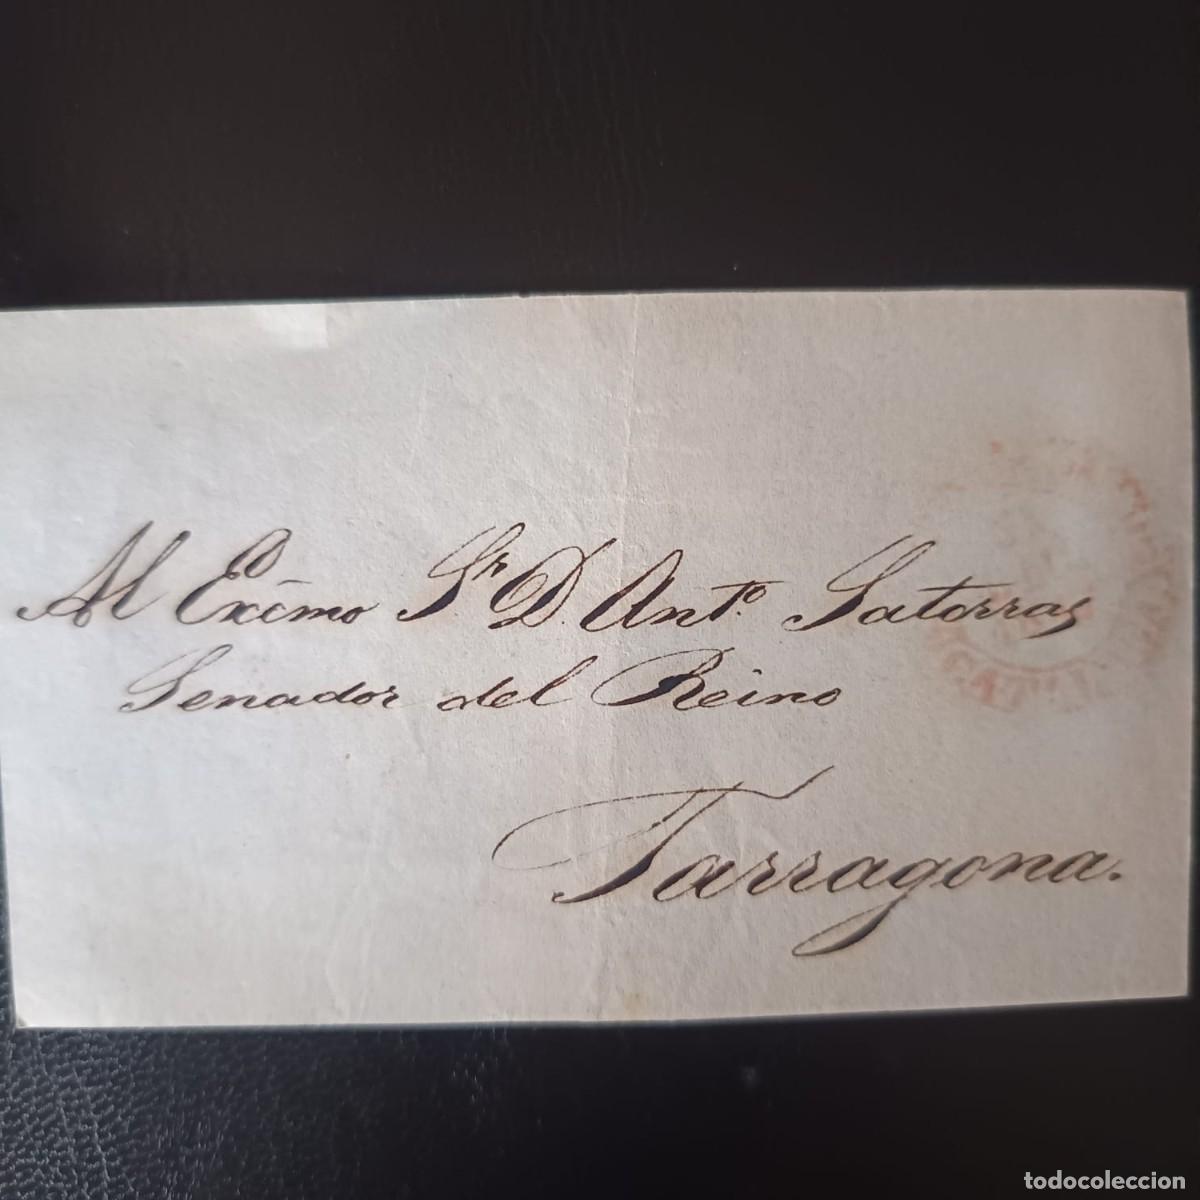 Al Exc̃mo Sr. D. Antº. Satorras
Senador del Reino
Tarragona.
todocoleccion